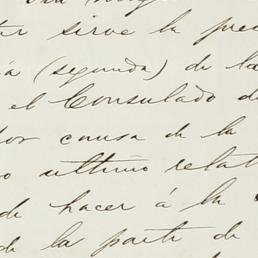 sirve la
á (segunda) de la
el Consulado de
por causa de la
o ultimo relat
de hacer á la
de la parte de